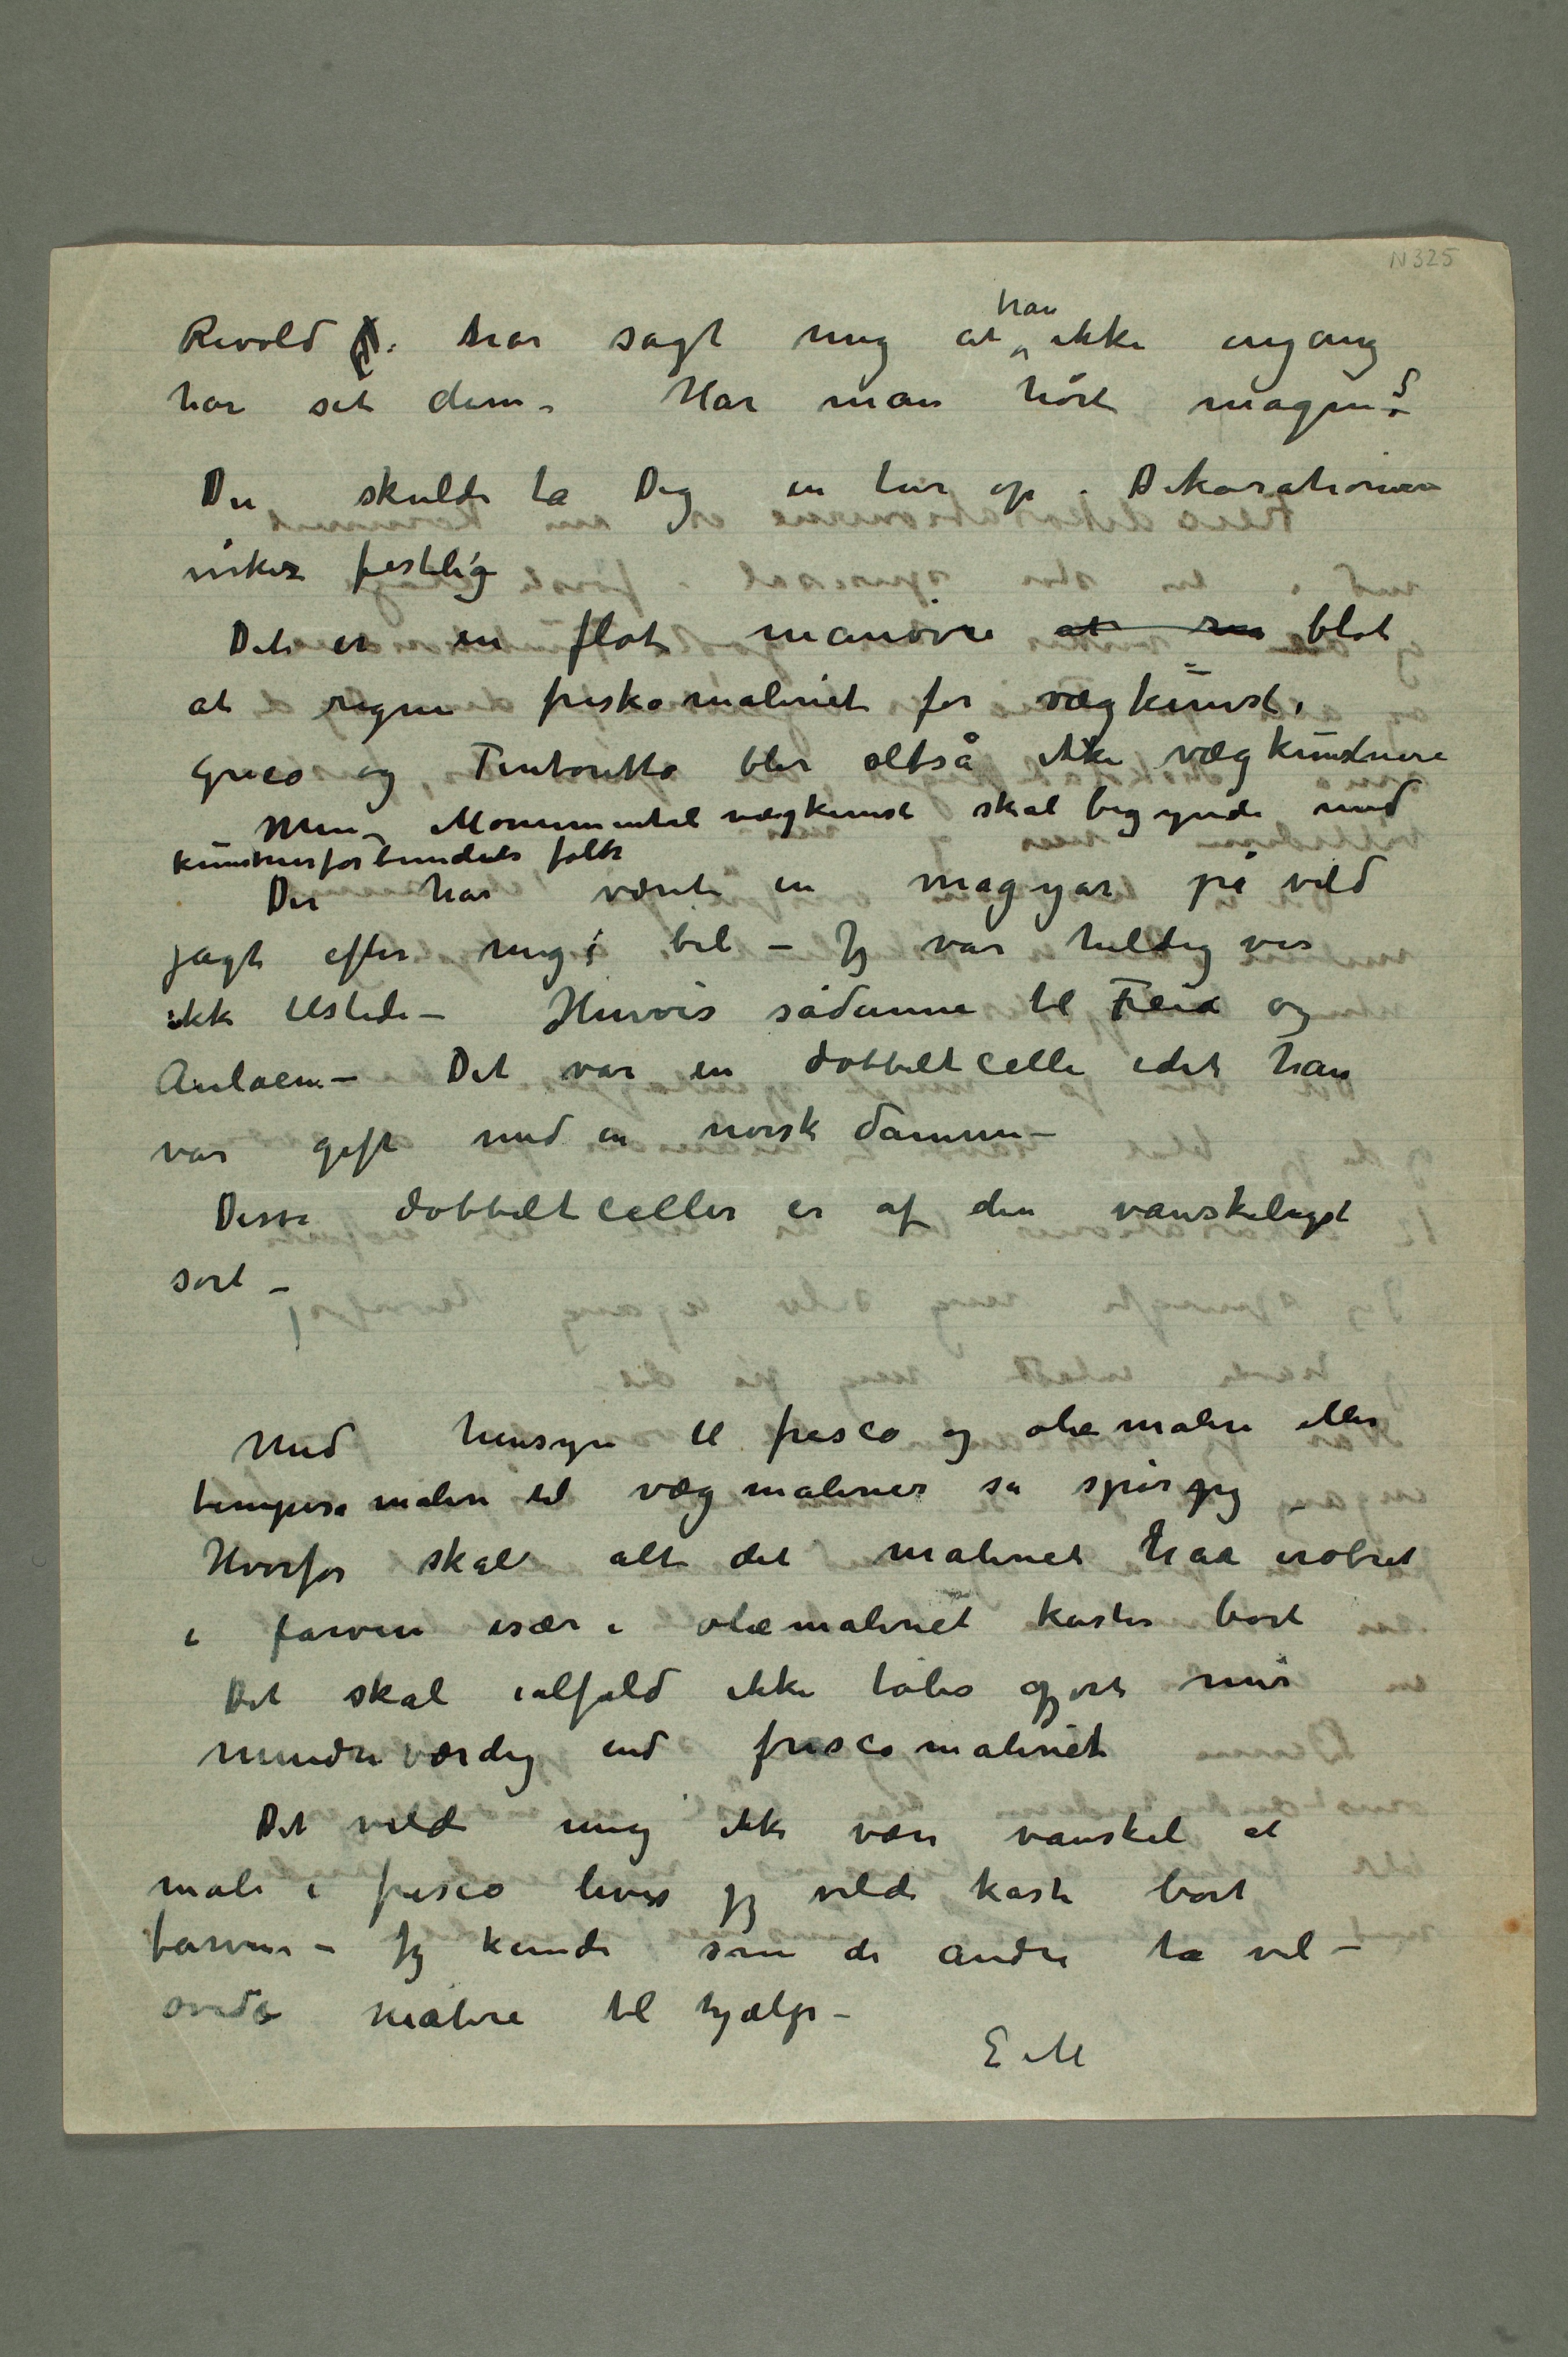 N 325
Revold har sagt mig at han ikke engang
har set dem – Har man hørt magen?
Du skulde ta Dig en tur op. Dekorationen
virker festlig
Det er en flot manøvre at blot
at regne freskomaleriet for vægkunst.
Greco og Tintoretto blir altså ikke vægkunstnere
Men – Monumental vægkunst skal begynde med
kunstnerforbundets folk
Der har været en magyar på vild
jagt efter mig i bil – Jeg var heldigvis
ikke tilstede – Henvis sådanne til Freia og
Aulaen – Det var en dobbeltcelle idet han
var gift med en norsk damme –
Disse dobbeltceller er af den vanskeligst
sort –
Med hensyn til fresco og oliemaleri eller
tempera maleri til vægmalerier så spør jeg –
Hvorfor skal alt det maleriet har erobret
i farven især i oliemaleriet kastes bort
Det skal ialfald ikke tåles gjort mer
mindreværdig end frescomaleriet
Det vilde mig ikke være vanskel at
male i fresco hvis jeg vilde kaste bort
farven – Jeg kunde som de andre ta vel –
øvede malere til hjælp –
E M